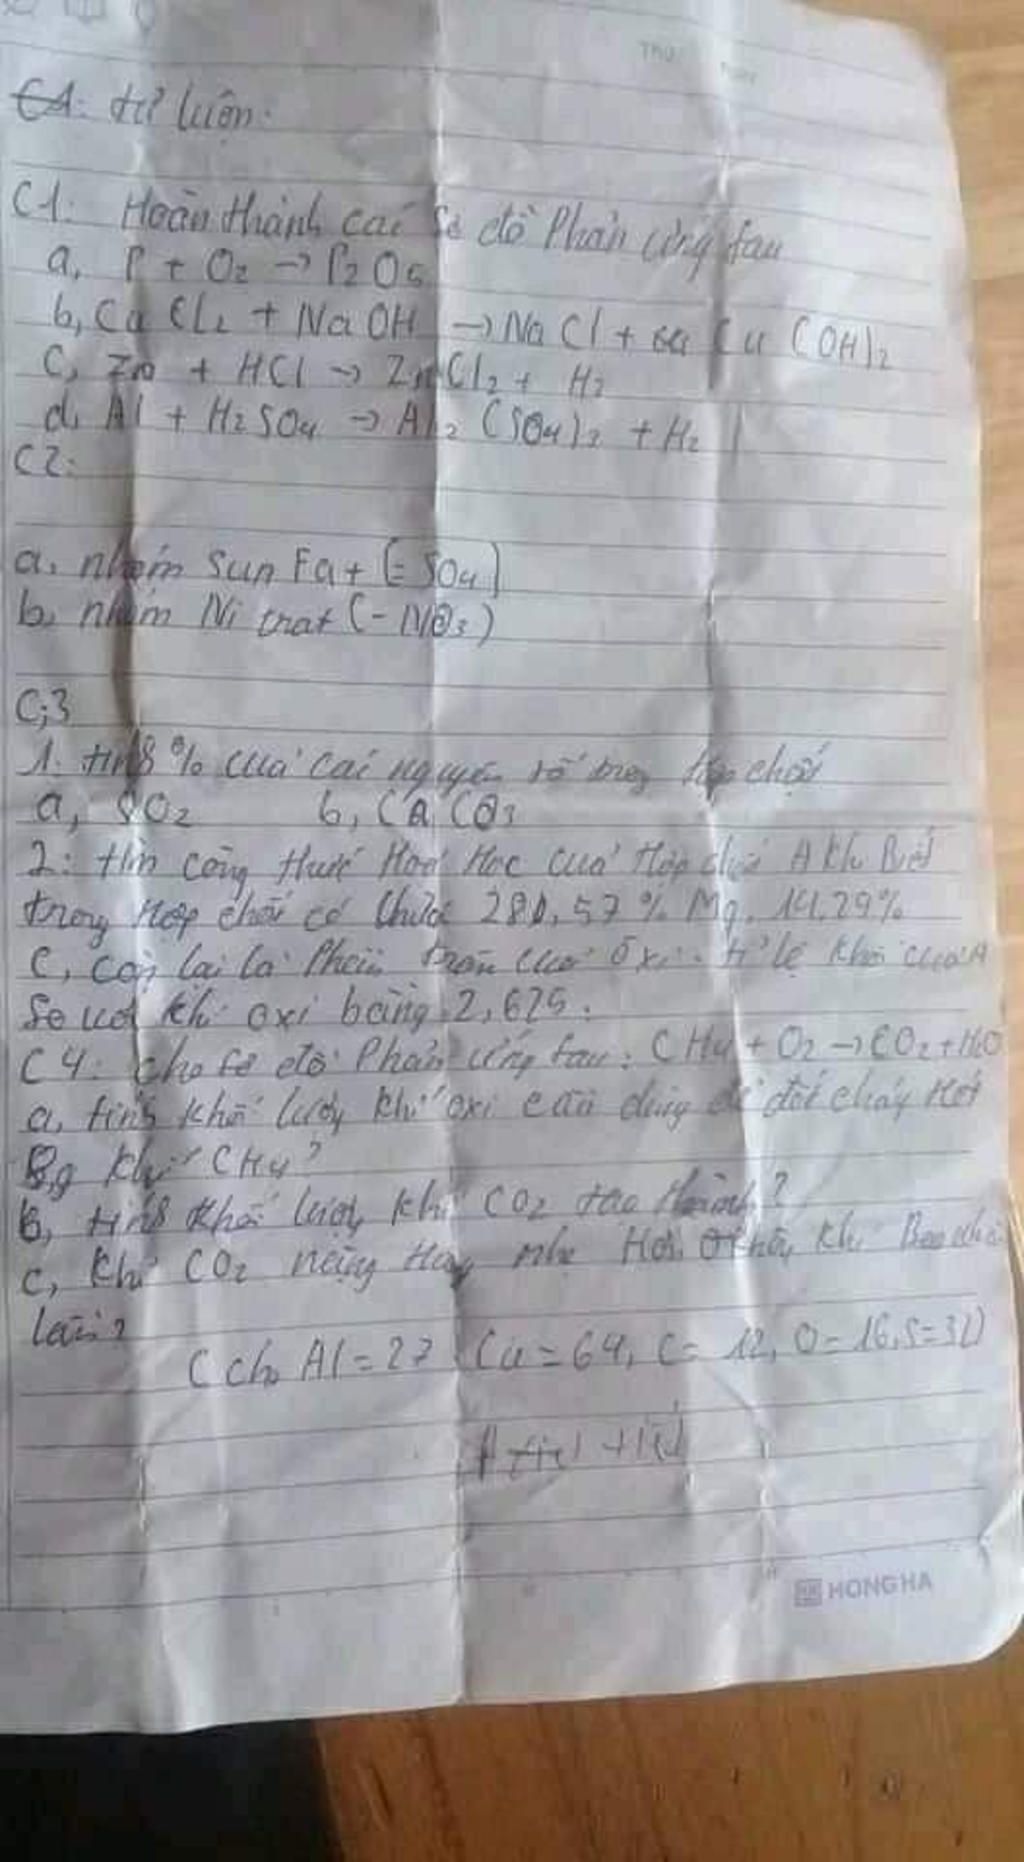 THỨ
NGÀY
C1: tự luận:
C1: Hoàn thành các sơ đồ Phản ứng sau
a, P + O2 → P2O5
b, CuCl2 + NaOH → NaCl + Cu(OH)2
C, Zn + HCl → ZnCl2 + H2
d, Al + H2SO4 → Al2(SO4)3 + H2
C2:
a, nhóm SunFat (=SO4)
b, nhóm Nitrat (-NO3)
C;3
1. tính % của các nguyên tố trong hợp chất
a, SO2 b, CaCO3
2: tìm công thức Hoá Học của Hợp chất A khi Biết
trong Hợp chất có chứa 28,57% Mg, 14,29%
C, còn lại là Phần trăm của oxi. tỉ lệ khối của A
So với khí oxi bằng 2,625.
C4: cho sơ đồ Phản ứng sau: CH4 + O2 → CO2 + H2O
a, tính khối lượng khí oxi cần dùng để đốt cháy Hết
8,g khí CH4?
b, tính khối lượng khí CO2 tạo thành?
c, khí CO2 nặng Hay nhẹ Hơn không khí Bao nhiêu
lần?
(cho Al = 27 Cu = 64, C = 12, O = 16, S = 32)
HONG HA